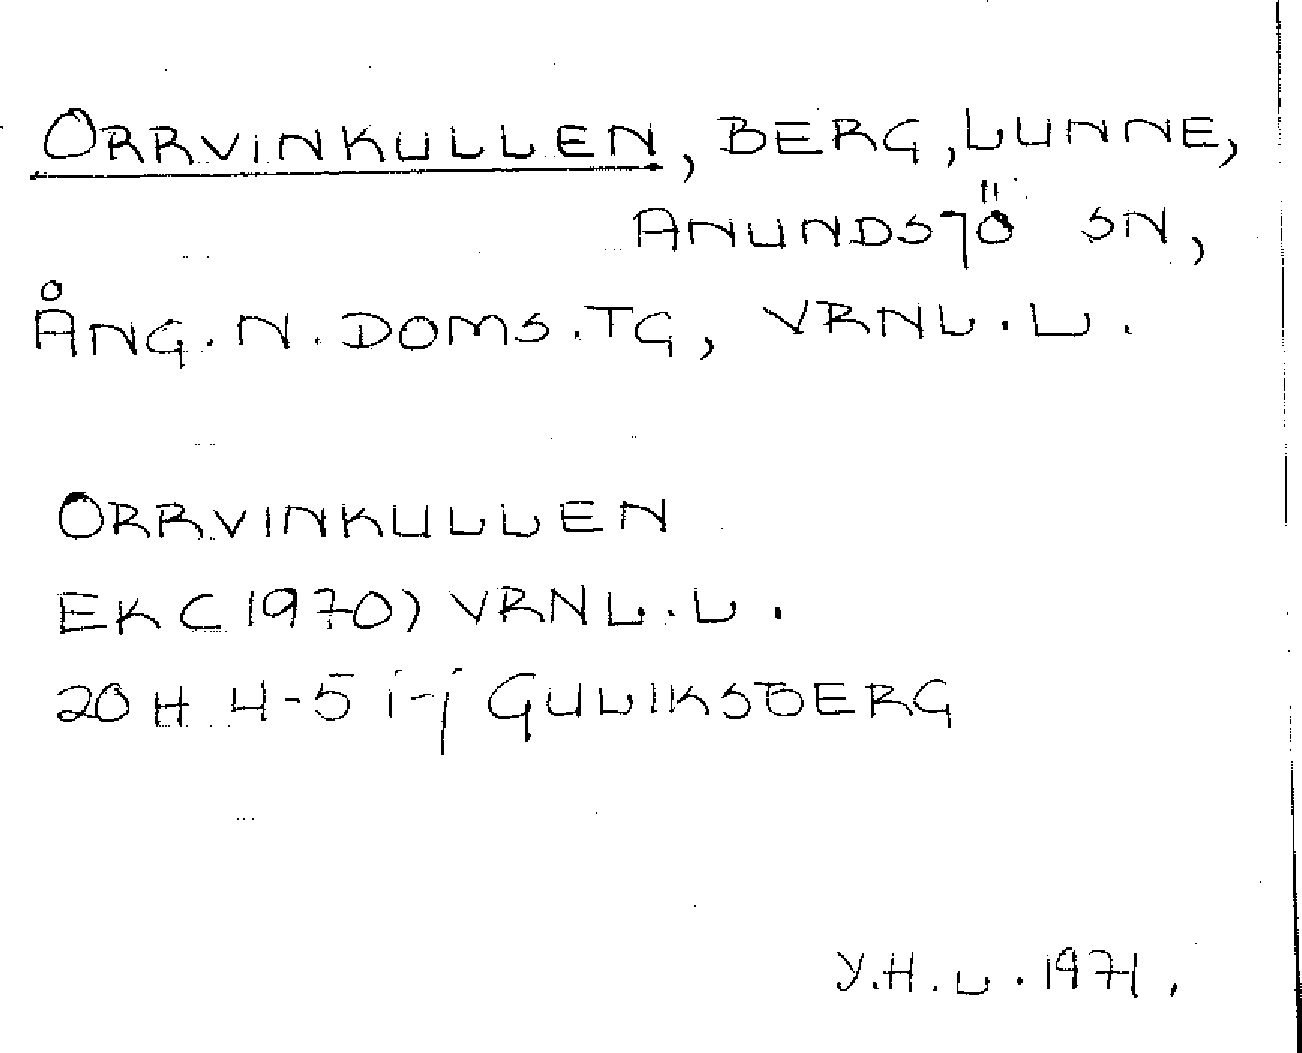 ORRVINKULLEN, BERG, LUNNE,
ANUNDSJÖ SN,
ÅNG. N. DOMS. TG, VRNL. L.
ORRVINKULLEN
EK (1970) VRNL. L.
20 H 4-5 i-j GULLIKSBERG
Y.H.L. 1971.